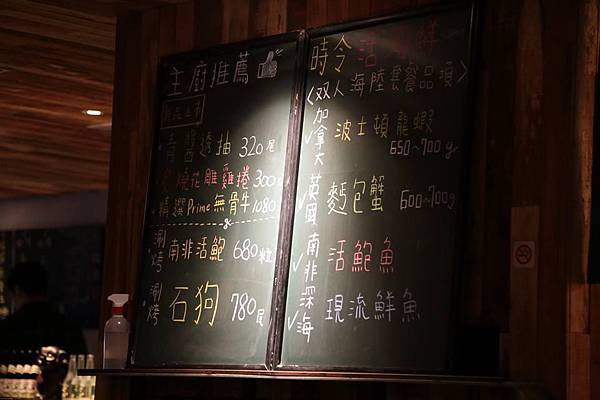 主廚推薦
新品上市
青醬透抽 320尾
燒花雕雞捲 300
精選Prime無骨牛 1080
涮烤 南非活鮑 680粒
涮烤 石狗 780尾
時令活海鮮
〈双人海陸套餐品項〉
加拿大 波士頓龍蝦
650~700g
英國 麵包蟹 600~700g
南非 活鮑魚
深海 現流鮮魚